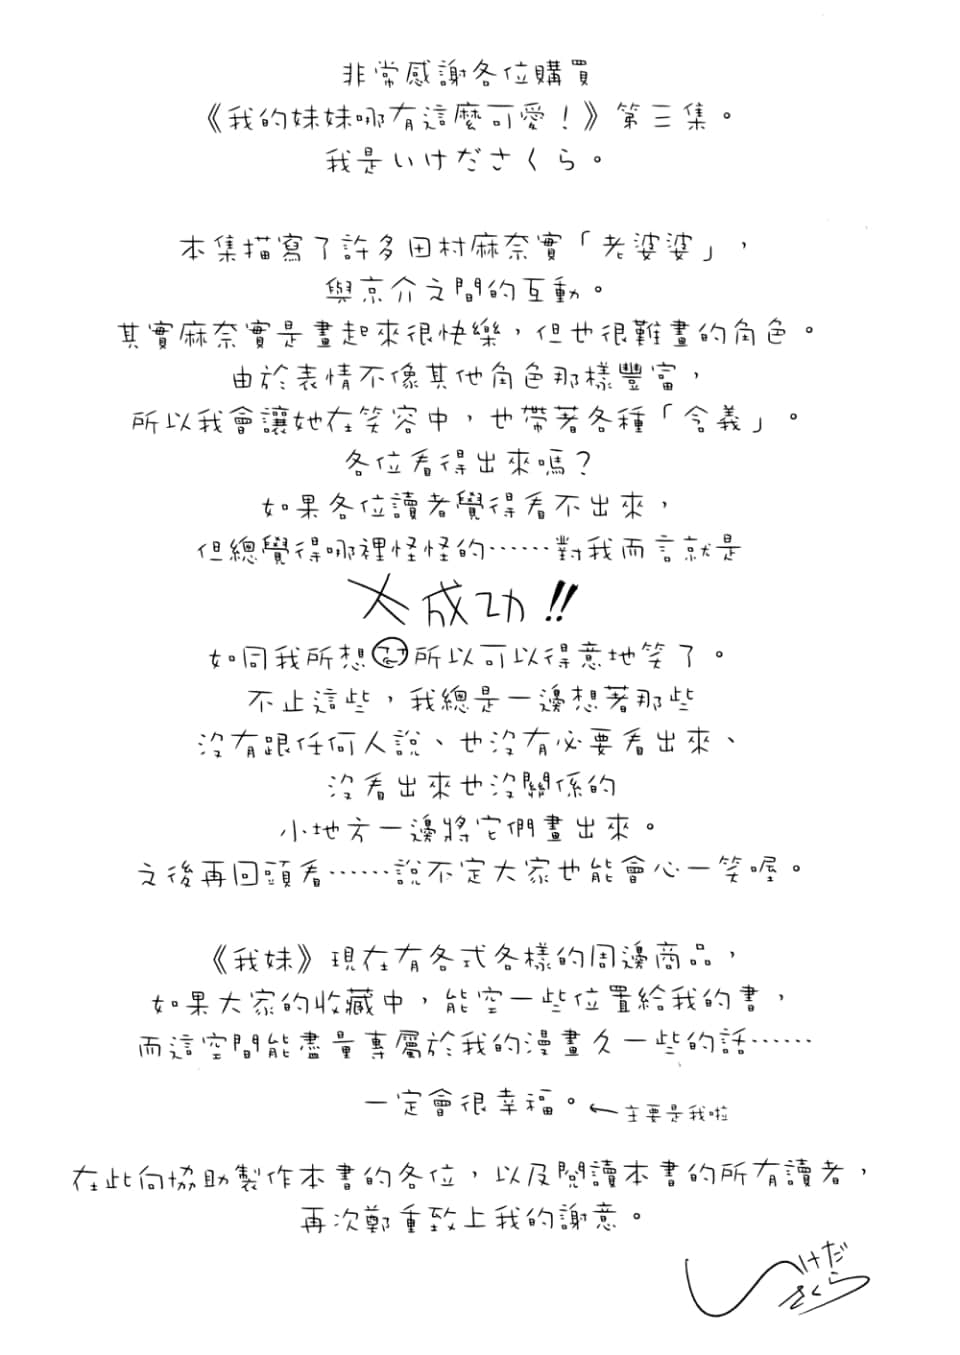 非常感謝各位購買
《我的妹妹哪有這麼可愛！》第三集。
我是いけださくら。
本集描寫了許多田村麻奈實「老婆婆」，
與京介之間的互動。
其實麻奈實是畫起來很快樂，但也很難畫的角色。
由於表情不像其他角色那樣豐富，
所以我會讓她在笑容中，也帶著各種「含義」。
各位看得出來嗎？
如果各位讀者覺得看不出來，
但總覺得哪裡怪怪的……對我而言就是
大成功！！
如同我所想所以可以得意地笑了。
不止這些，我總是一邊想著那些
沒有跟任何人說、也沒有必要看出來、
沒看出來也沒關係的
小地方一邊將它們畫出來。
之後再回頭看……說不定大家也能會心一笑喔。
《我妹》現在有各式各樣的周邊商品，
如果大家的收藏中，能空一些位置給我的書，
而這空間能盡量專屬於我的漫畫久一些的話……
一定會很幸福。←主要是我啦
在此向協助製作本書的各位，以及閱讀本書的所有讀者，
再次鄭重致上我的謝意。
いけだ
さくら